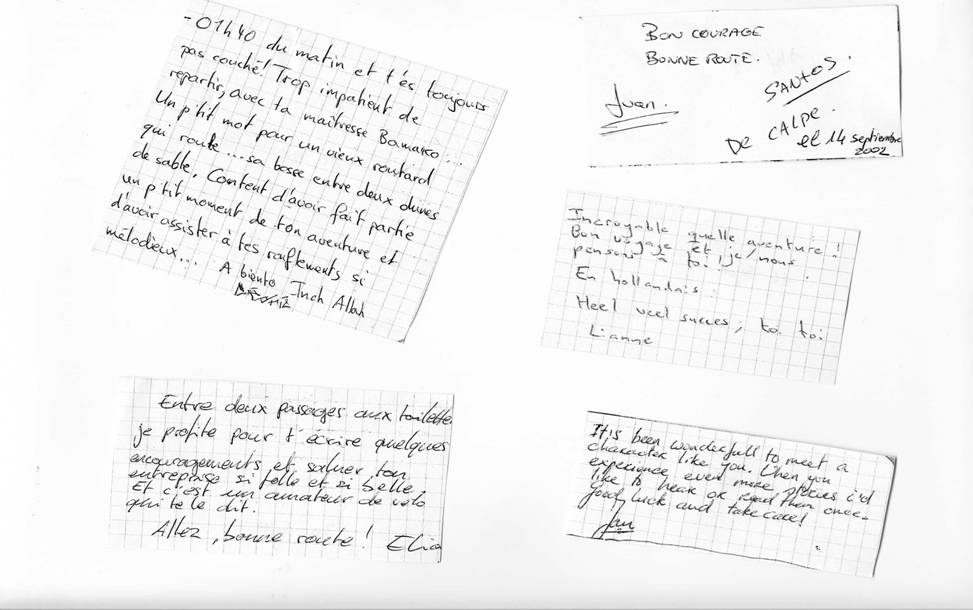 - 01h40 du matin et t'es toujours
pas couché! Trop impatient de
repartir, avec ta maîtresse Bamako...
Un p'tit mot pour un vieux routard
qui roule... sa bosse entre deux dunes
de sable. Content d'avoir fait partie
un p'tit moment de ton aventure et
d'avoir assister à tes ronflements si
mélodieux... A biento Inch Allah
BON COURAGE
BONNE ROUTE.
Juan.
SANTOS.
DE CALPE.
el 14 septiembre
2002
Incroyable quelle aventure!
Bon voyage et je/nous
pensons à toi!
En hollandais:
Heel veel succes, toi toi
Lianne
Entre deux passages aux toilettes
je profite pour t'écrire quelques
encouragements et saluer ton
entreprise si folle et si belle.
Et c'est un amateur de vélo
qui te le dit.
Allez, bonne route! Elia
It is been wonderfull to meet a
character like you. When you
experience even more stories i'd
like to hear or read them once.
good luck and take care!
Jan